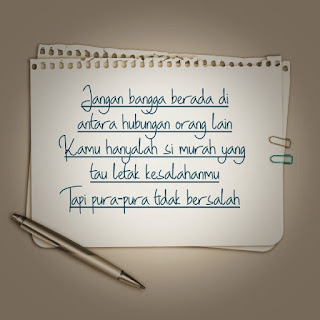 Jangan bangga berada di
antara hubungan orang lain
Kamu hanyalah si murah yang
tau letak kesalahanmu
Tapi pura-pura tidak bersalah